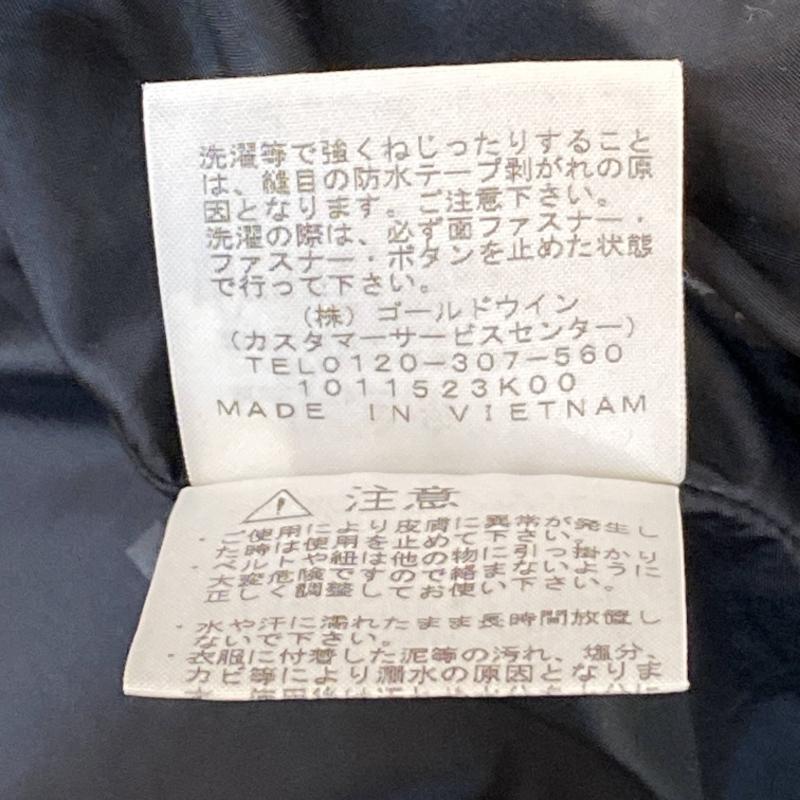 洗濯等で強くねじったりすること
は、縫目の防水テープ剥がれの原
因となります。ご注意下さい。
洗濯の際は、必ず面ファスナー・
ファスナー・ボタンを止めた状態
で行って下さい。
(株)ゴールドウイン
(カスタマーサービスセンター)
TEL0120-307-560
1011523K00
MADE IN VIETNAM
⚠ 注意
・ご使用により皮膚に異常が発生し
た時は使用を止めて下さい。
・ベルトや紐は他の物に引っ掛かり
大変危険ですので絡まないように
正しく調整してお使い下さい。
・水や汗に濡れたまま長時間放置し
ないで下さい。
・衣服に付着した泥等の汚れ、塩分、
カビ等により漏水の原因となりま